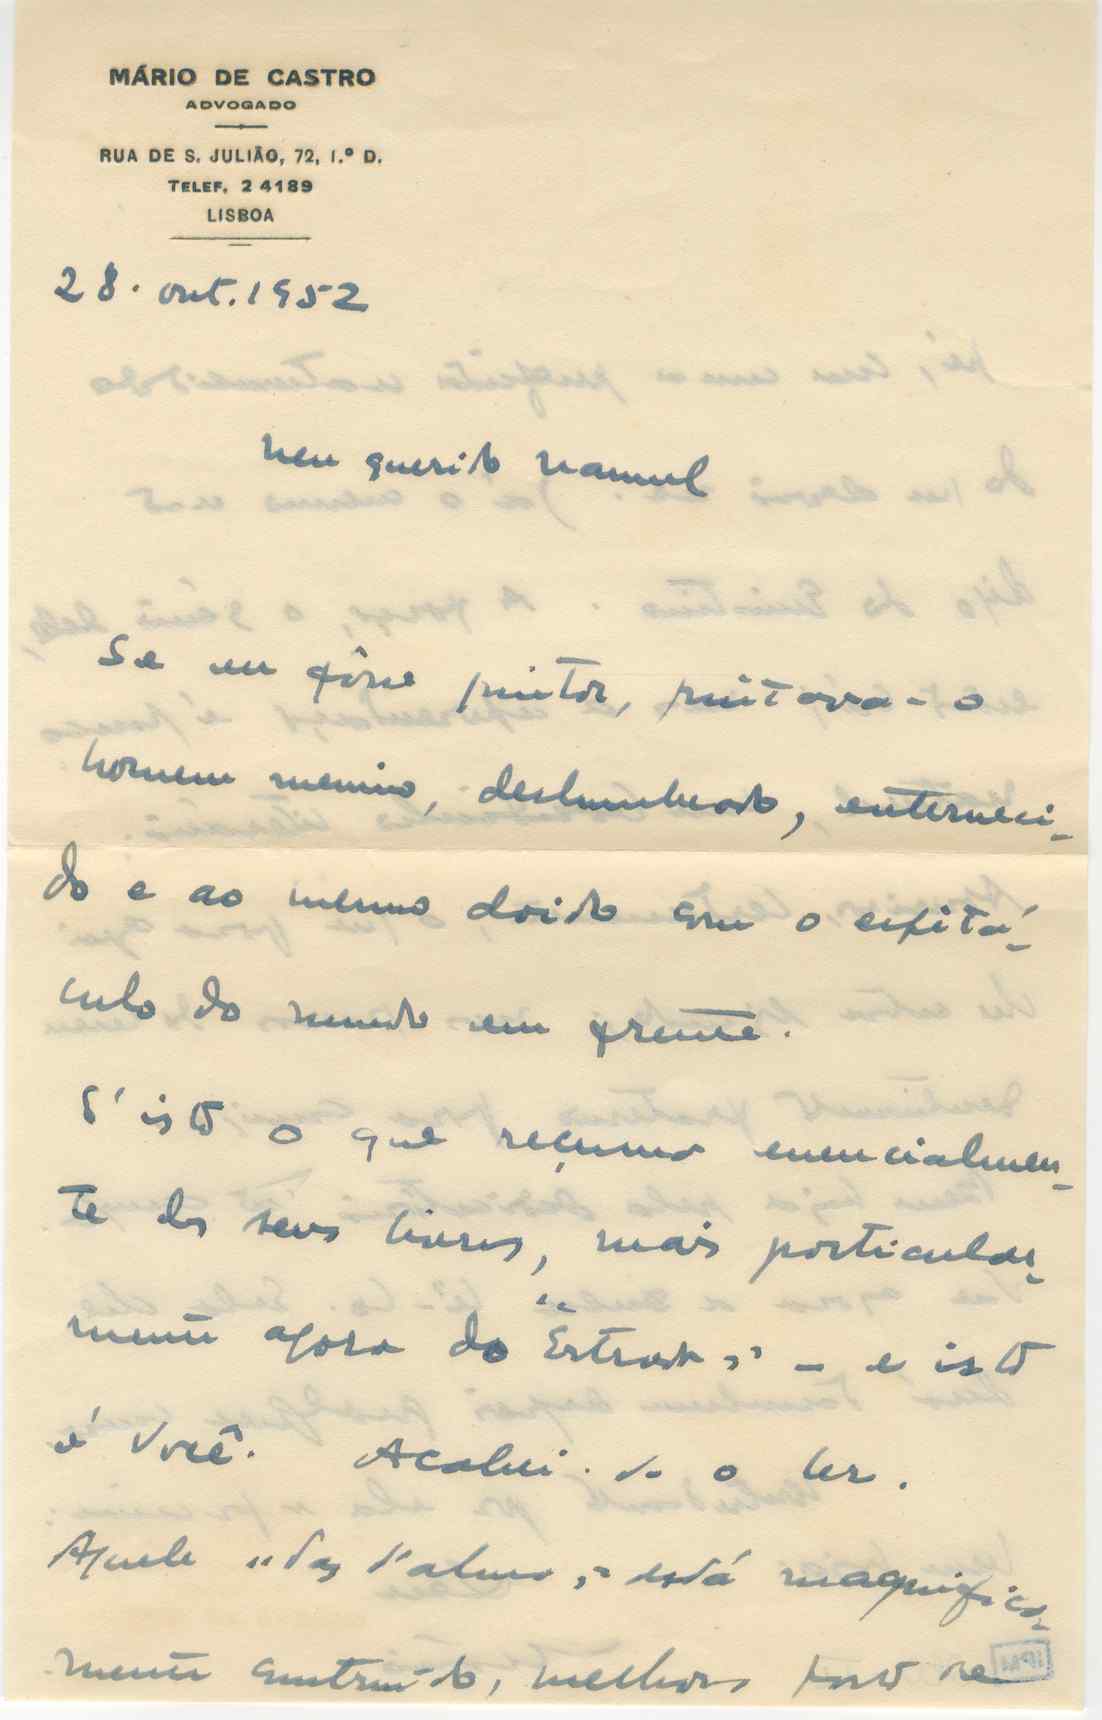 MÁRIO DE CASTRO
ADVOGADO
RUA DE S. JULIÃO, 72, 1.º D.
TELEF. 2 4189
LISBOA
28. out. 1952
Meu querido Manuel
Se eu fôsse pintor, pintava-o
homem menino, deslumbrado, enterneci-
do e ao mesmo doido com o espetá-
culo do mundo em frente.
É isto o que reçuma essencialmen-
te dos seus livros, mais particular-
mente agora do "Estrada" - e isto
é Você. Acabei-o de o ler.
Aquele " d'alma" está magnifica-
mente construido, melhor, posto de